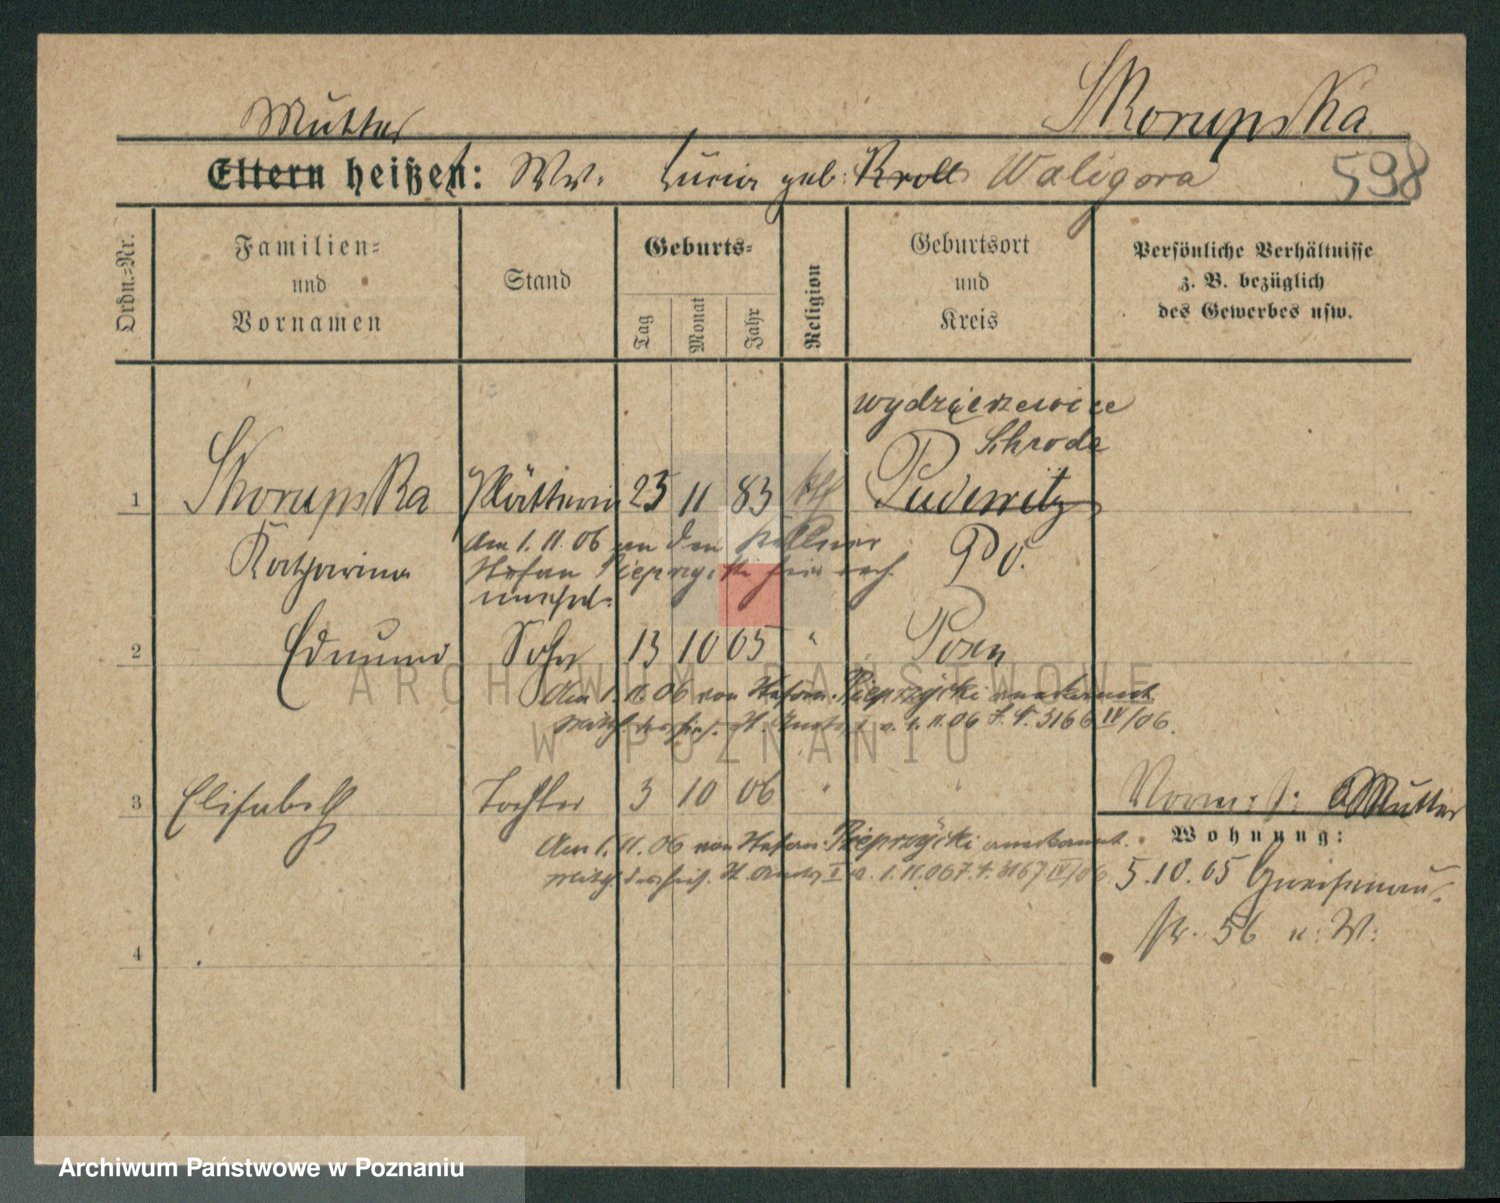 Skorupska
Mutter
Eltern heißen: Ww. Lucia geb. Kroll Waligora 598
Ordn.-Nr.
Familien-
und
Vornamen
Stand
Geburts-
Tag
Monat
Jahr
Religion
Geburtsort
und
Kreis
Persönliche Verhältnisse
z. B. bezüglich
des Gewerbes usw.
Schroda
1 Skorupska Plätterin 23 11 83 Pudewitz
Katharina
Am 1. 11. 06 an den Kellner
Po.
2 Edmund Sohn 13 10 05 " Posen
Am 1. 11. 06 von Stefan Pieprzycki anerkannt
v. 1. 11. 06 J. N. 3166 IV/06.
3 Elisabeth Tochter 3 10 06 " "
Am 1. 11. 06 von Stefan Pieprzycki anerkannt.
v. 1. 11. 06 J. N. 3167 IV/06
Mutter
Wohnung:
5. 10. 05 Gneisenau-
str. 56 b. W.
4
ARCHIWUM PAŃSTWOWE
W POZNANIU
Archiwum Państwowe w Poznaniu